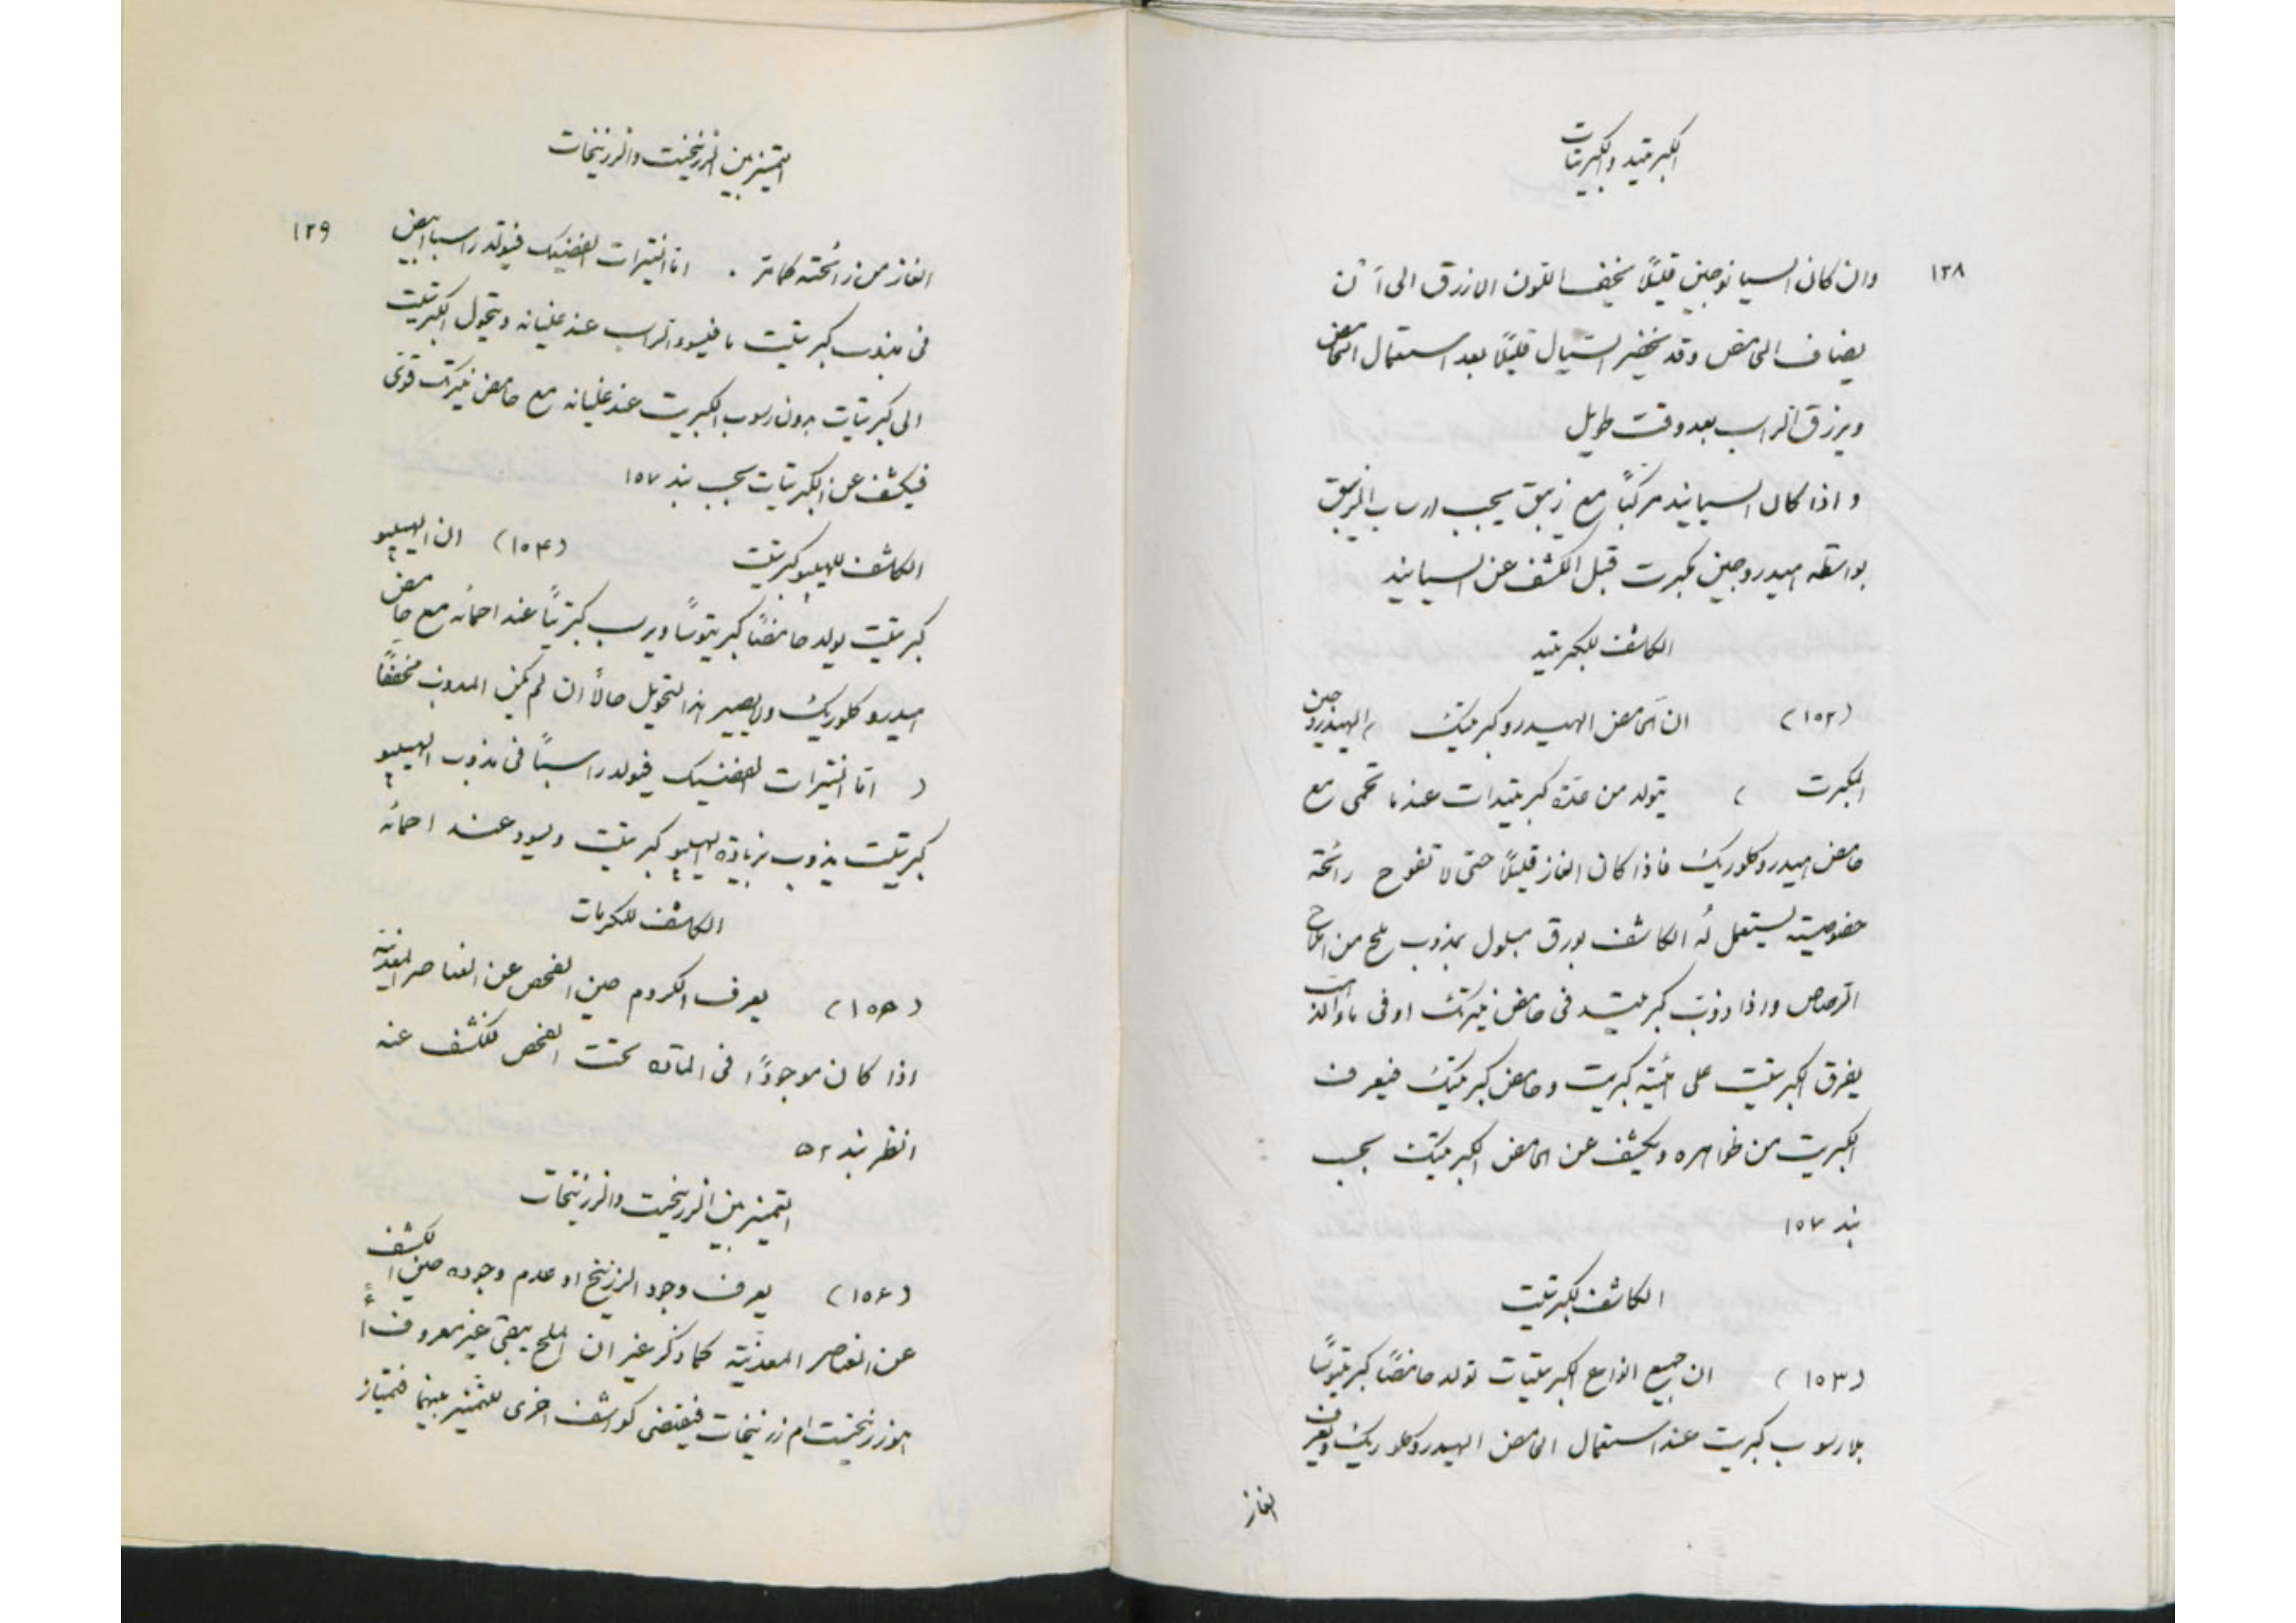 الكبريتيد والكبريتات
١٢٨
وان كان السيانوجين قليلًا يخيف اللون الازرق الى آن
يضاف الحامض وقد يخضر السيال قليلًا بعد استعمال الحامض
ويرزق الراسب بعد وقت طويل
واذا كان السيانيد مركبًا مع زيبق يجب ارساب الزيبق
بواسطه هيدروجين مكبرت قبل الكشف عن السيانيد
الكاشف للكبريتيد
(١٥٢) ان الحامض الهيدروكبريتيك ( الهيدروجين
المكبرت ) يتولد من عدّه كبريتيدات عندما تحمى مع
حامض هيدروكلوريك فاذا كان الغاز قليلًا حتى لا تفوح رائحة
خصوصيته يستعمل لهُ الكاشف بورق مبلول بمذوب ملح من املاح
الرصاص واذا ذوّب كبريتيد فى حامض نيتريك او فى ماء الذهب
يفرق الكبريتيت على هيئة كبريت وحامض كبريتيك فيعرف
الكبريت من ظواهره ويكشف عن الحامض الكبريتيك بحسب
بند ١٥٧
الكاشف لكبريتيت
(١٥٣) ان جميع انواع الكبريتيات تولد حامضًا كبريتوسًا
بلا رسوب كبريت عند استعمال الحامض الهيدروكلوريك ويعرف
الغاز
التمييز بين الزرنيخيت والزرنيخات
١٢٩
الغاز من رائحته كما مر . اما النيترات الفضيك فيولد راسبا ابيض
فى مذوب كبريتيت ما فيسود الراسب عند غليانه ويتحول الكبريتيت
الى كبريتات بدون رسوب الكبريت عند غليانه مع حامض نيتريك قوى
فيكشف عن الكبريتات بحسب بند ١٥٧
الكاشف للهيپوكبريتيت (١٥٤) ان الهيپو
كبريتيت يولد حامضًا كبريتوسًا ويرسب كبريتًا عند احمائه مع حامض
هيدروكلوريك ولا يصير هذا التحويل حالًا ان لم يكن المذوب مخففًا
) اما النيترات الفضيك فيولد راسبًا فى مذوب الهيپو
كبريتيت يذوب بزيادة الهيپو كبريتيت ويسود عند احمائه
الكاشف للكرمات
(١٥٥) يعرف الكروم حين الفحص عن العناصر المعدنية
اذا كان موجودًا فى المادّه تحت الفحص للكشف عنه
انظر بند ٥٢
التمييز بين الزرنيخيت والزرنيخات
(١٥٦) يعرف وجود الزرنيخ او عدم وجوده حين الكشف
عن العناصر المعدنيّة كما ذكر غير ان الملح يبقى غير معروف أ
هو زرنيخيت ام زرنيخات فيقتضى كواشف اخرى للتمييز بينهما فيمتاز